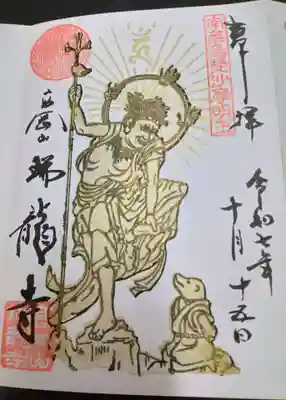 奉拝
令和七年
十月十五日
高岡山
瑞龍寺